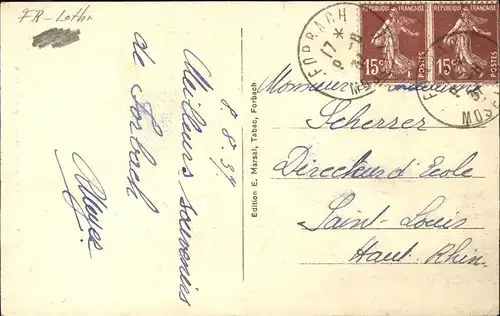 FR - Lothr
8.8.39
Meilleurs souvenirs
de Forbach
Edition E. Marsal, Tabac, Forbach
REPUBLIQUE FRANÇAISE
15c
POSTES
REPUBLIQUE FRANÇAISE
15c
POSTES
FORBACH
17 *
8 - 8
MOS
Monsieur
Scherrer
Directeur d'Ecole
Saint-Louis
Haut-Rhin